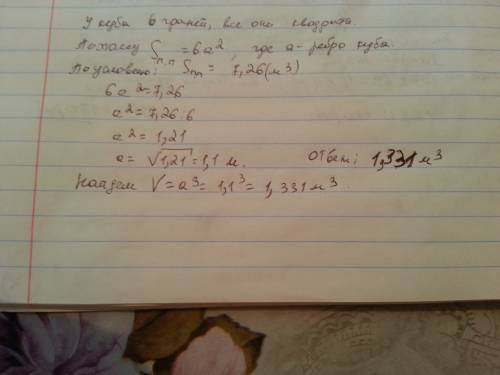 У куба 6 граней, все они квадраты.
Поэтому Sп.п = 6a², где a - ребро куба.
По условию: Sп.п = 7,26 (м³)
6a² = 7,26
a² = 7,26 : 6
a² = 1,21
a = √1,21 = 1,1 м. Ответ: 1,331 м³
Найдем V = a³ = 1,1³ = 1,331 м³.